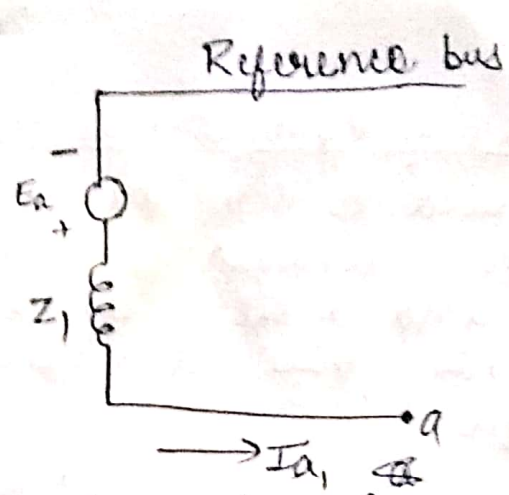 Reference bus
−
Ea
+
Z1
a
→ Ia1